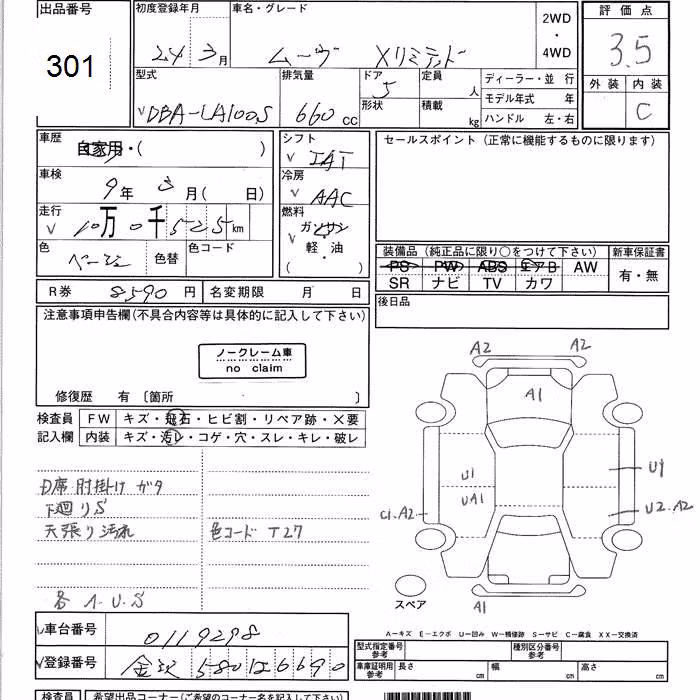 出品番号 301
初度登録年月 24 3月
車名・グレード ムーヴ Xリミテッド
2WD・4WD
評価点 3.5
外装 内装 C
型式 DBA-LA100S
排気量 660 cc
ドア 5
形状
定員 人
積載 kg
ディーラー・並行
モデル年式 年
ハンドル 左・右
車歴 自家用・( )
車検 9年3月( 日)
走行 10万0千525km
色 ベージュ 色替 色コード
シフト IAT
冷房 AAC
燃料 ガソリン
軽・油
( )
セールスポイント (正常に機能するものに限ります)
装備品 (純正品に限り○をつけて下さい)
PS PW ABS エアB AW
SR ナビ TV カワ
新車保証書
有・無
R券 8590円 名変期限 月 日
後日品
注意事項申告欄(不具合内容等は具体的に記入して下さい)
ノークレーム車
no claim
修復歴 有 〔箇所 〕
検査員 FW キズ・飛石・ヒビ割・リペア跡・X要
記入欄 内装 キズ・汚レ・コゲ・穴・スレ・キレ・破レ
D席 肘掛け ガタ
下廻りS
天張り汚れ 色コード T27
各 A・U・S
A2 A2
A1
U1 U1
UA1
C1.A2 U2.A2
スペア A1
A-キズ E-エクボ U-凹み W-補修跡 S-サビ C-腐食 XX-交換済
車台番号 0119298
登録番号 580 6690
型式指定番号 参考
種別区分番号 参考
車庫証明用 参考 長さ cm 幅 cm 高さ cm
検査員 希望出品コーナー(ご希望のコーナー名を記入して下さい)